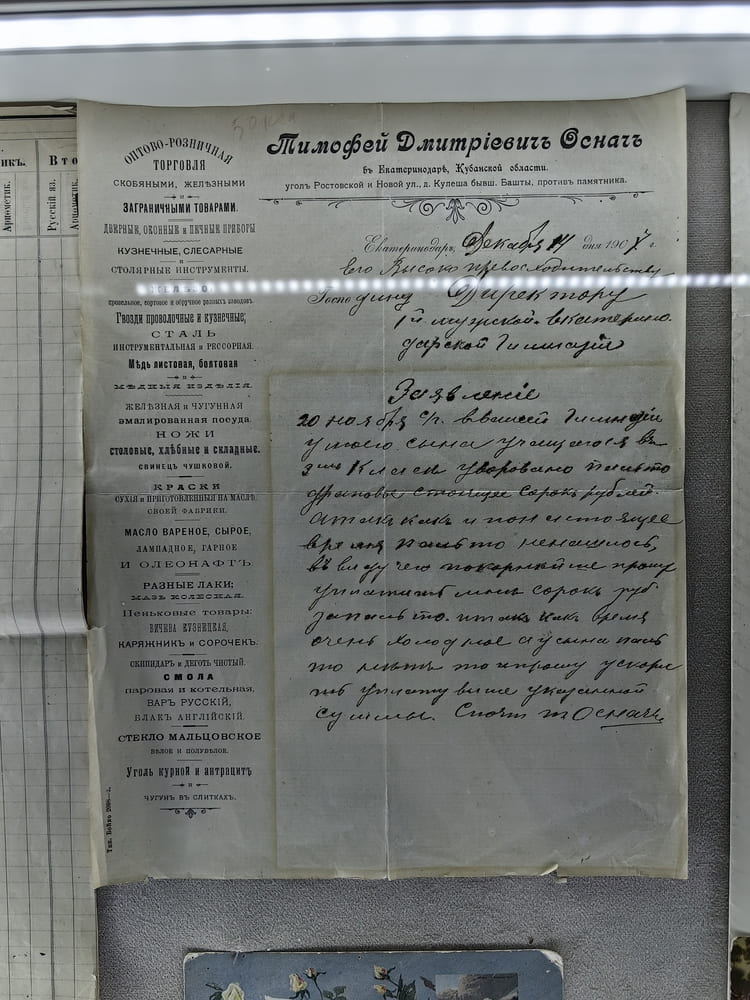 икъ.
Вто
Ариѳметик.
Русскій яз.
Ариѳметик.
ОПТОВО-РОЗНИЧНАЯ
ТОРГОВЛЯ
СКОБЯНЫМИ, ЖЕЛѢЗНЫМИ
и
ЗАГРАНИЧНЫМИ ТОВАРАМИ.
ДВЕРНЫЕ, ОКОННЫЕ и ПЕЧНЫЕ ПРИБОРЫ
КУЗНЕЧНЫЕ, СЛЕСАРНЫЕ
и
СТОЛЯРНЫЕ ИНСТРУМЕНТЫ.
кровельное, сортовое и обручное разныхъ заводовъ.
Гвозди проволочные и кузнечные;
СТАЛЬ
ИНСТРУМЕНТАЛЬНАЯ и РЕССОРНАЯ.
Мѣдь листовая, болтовая
и
МѢДНЫЯ ИЗДѢЛІЯ.
ЖЕЛѢЗНАЯ и ЧУГУННАЯ
эмалированная посуда.
НОЖИ
столовые, хлѣбные и складные.
СВИНЕЦЪ ЧУШКОВОЙ.
КРАСКИ
СУХІЯ и ПРИГОТОВЛЕННЫЯ НА МАСЛѢ
СВОЕЙ ФАБРИКИ.
МАСЛО ВАРЕНОЕ, СЫРОЕ,
ЛАМПАДНОЕ, ГАРНОЕ
И ОЛЕОНАФТЪ.
РАЗНЫЕ ЛАКИ;
МАЗЬ КОЛЕСНАЯ.
Пеньковые товары:
БИЧЕВА КУЗНЕЦКАЯ,
КАРЯЖНИКЪ и СОРОЧЕКЪ.
СКИПИДАРЪ и ДЕГОТЬ ЧИСТЫЙ.
СМОЛА
паровая и котельная,
ВАРЪ РУССКІЙ,
БЛАКЪ АНГЛІЙСКІЙ.
СТЕКЛО МАЛЬЦОВСКОЕ
БѢЛОЕ и ПОЛУБѢЛОЕ.
Уголь курной и антрацитъ
и
ЧУГУНЪ ВЪ СЛИТКАХЪ.
Тип. Бойко 2098—г.
Тимофей Дмитріевичъ Осначъ
въ Екатеринодарѣ, Кубанской области.
уголъ Ростовской и Новой ул., д. Кулеша бывш. Башты, противъ памятника.
Екатеринодаръ, Декабря 14 дня 1907 г.
Его Высокопревосходительству
Господину Директору
1й мужской Екатерино
дарской Гимназіи
Заявленіе
20 ноября с/г. в вашей Гимназіи
у моего сына учащагося въ
2мъ Класси уворовано пальто
драповые стоющее сорокъ рублей.
А такъ какъ и по настоящее
время пальто ненашлось,
въ виду чего покорнѣйше прошу
уплатить мнѣ сорокъ руб
за пальто. и такъ какъ время
очень холодное а у сына паль
то нѣтъ то и прошу ускори
ть уплату выше указанной
суммы. С почт Т Осначъ.